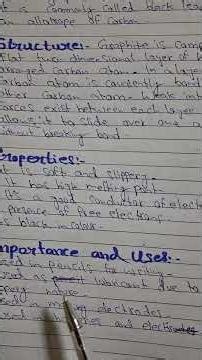 It is commonly called black lea
an allotrope of Carbon
Structure:- Graphite is comp
flat two dimensional layer of h
arranged carbon atom. In a laye
carbon atom is covalently bond
other carbon atom. Weak int
forces exist between each layer
allows it to slide over one a
without breaking bond.
Properties:-
It is soft and slippery.
It has high melting point
It's a good conductor of elect
presence of free electrons.
is black in colour.
Importance and Uses:-
used in pencils for writing
used as lubricant due to
slippery nature
used in making electrodes
used in and electrodes